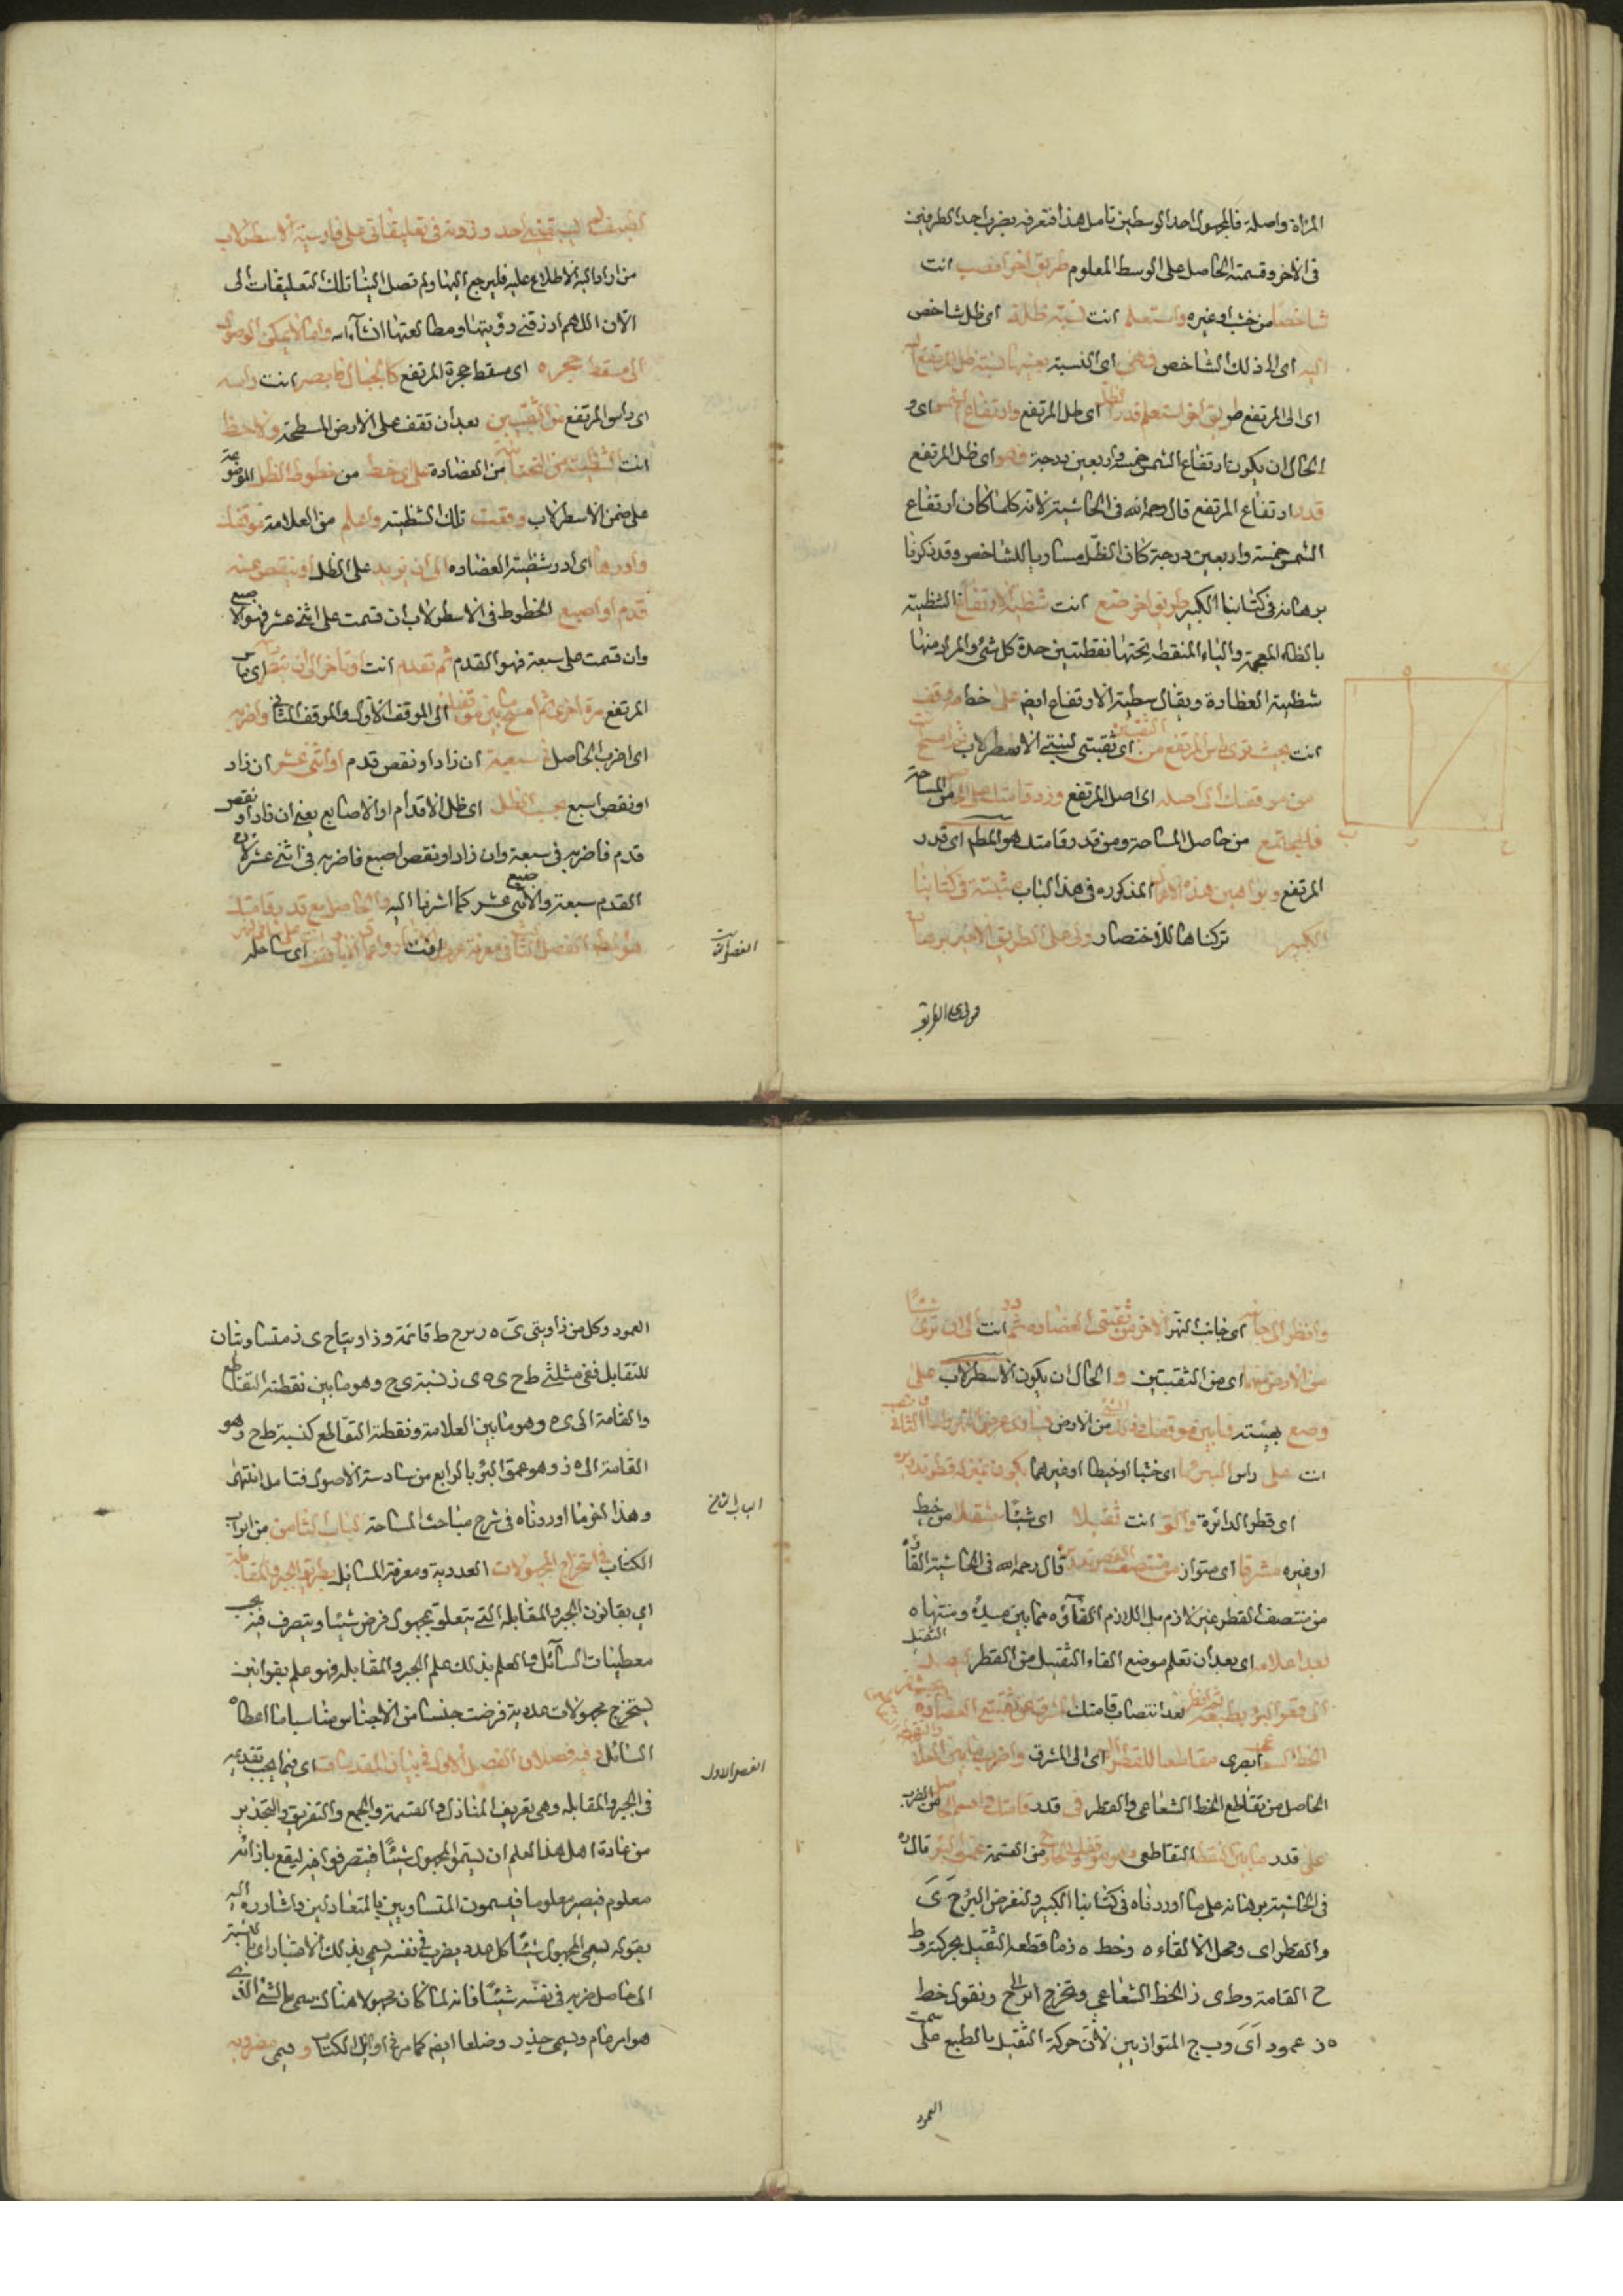 المرأة واصله فالمجهول احد الوسطين تامل هذا فتعرفه بضرب احد الطرفين
فى الآخر وقسمته الحاصل على الوسط المعلوم طريق اخر انصب انت
شاخصا من خشب او غيره واستعلم انت نسبة ظله اى ظل شاخص
اليه اى الى ذلك الشاخص فهى اى النسبة بعينها نسبة ظل المرتفع اليه
اى الى المرتفع طريق اخر استعلم قدر الظل اى ظل المرتفع وارتفاع الشمس اى و
الحال ان يكون ارتفاع الشمس خمسة واربعين درجة فهو اى ظل المرتفع
قدر ارتفاع المرتفع قال رحمه الله فى الحاشية لانه كلما كان ارتفاع
الشمس خمسة واربعين درجة كان الظل مساويا للشاخص وقد ذكرنا
برهانه فى كتابنا الكبير طريق اخر ضع انت شظية الارتفاع الشظية
بالظاء المعجمة والياء المنقطة تحتها نقطتين حدة كل شئ والمراد منها
شظية العظادة ويقال سطية الارتفاع ايضا على خط مه وقف
انت بحيث ترى راس المرتفع من الثقبتين اى ثقبتى لبنتى الاسطرلاب ثم امسح
من موقفك الى اصله اى اصل المرتفع وزد قامتك على الحاصل من المساحة
فالمجتمع من حاصل المساحة ومن قدر قامتك هو المط اى قدر
المرتفع وبراهين هذه الاعمال المذكوره فى هذا الباب مثبتة فى كتابنا
الكبير تركناها للاختصار ولى على الطريق الاخير برهان
ولى على الطريق
لطيف لم يسبقنى اليه احد وردته فى تعليقاتى على فارسية الاسطرلاب
من اراد الاطلاع عليه فليرجع اليها ولم تصل الينا تلك التعليقات الى
الآن اللهم ارزقنى رؤيتها ومطالعتها انشآء الله واما ما لا يمكن الوصول
الى مسقط حجره اى مسقط حجرة المرتفع كالجبال فابصر انت راسه
اى راس المرتفع من الثقبتين بعد ان تقف على الارض المسطحة ولاحظ
انت الشظية من التحتانية من العضادة على اى خط من خطوط الظل الموضوعة
على ضمن الاسطرلاب وقعت تلك الشظية واعلم من العلامة موقفك
وادرها اى ادر شظية العضاده الى ان تزيد على الظل او تنقص عنه
قدم او اصبع الخطوط فى الاسطرلاب ان قسمت على اثنى عشر فهو الاصبع
وان قسمت على سبعة فهو القدم ثم تقدم انت او تاخر الى ان تبصر اى راس
المرتفع مرة اخرى ثم امسح ما بين موقفيك اى الموقف الاول والموقف الثانى واضربه
اى اضرب الحاصل فى سبعة ان زاد او نقص قدم او اثنى عشر ان زاد
او نقص اصبع بحسب الظل اى ظل الاقدام او الاصابع يعنى ان زاد او نقص
قدم فاضربه فى سبعة وان زاد او نقص اصبع فاضربه فى اثنى عشر لان
القدم سبعة والاصبع اثنى عشر كما اشرنا اليه فالحاصل مع قدر قامتك
هو المط الفصل الثانى معرفة عروض الانهار واعماق الآبار قف انت على شاطئ النهر اى ساحله
الفصل الثانى
وانظر الى جانبه اى جانب النهر الآخر من ثقبتى العضاده ثم در انت الى ان ترى شيئا
من الارض منهما اى من الثقبتين و الحال ان يكون الاسطرلاب على
وضع بهيئته فما بين موقفك وذلك الشئ من الارض يساوى عرض النهر واما الثانى فانصب
انت على راس البئر ما اى خشبا او خيطا او غيرهما يكون بمنزلة قطر تدويره
اى قطر الدائرة والق انت ثقيلا اى شيئا مثقلا من خيط
او غيره مشرقا اى متواز من منتصف القطر قال رحمه الله فى الحاشية القاؤه
من منتصف القطر غير لازم بل اللازم القآؤه مما بين مبدئه ومنتهاه
بعد اعلامه اى بعد ان تعلم موضع القاء الثقيل من القطر ليصل الثقيل
الى قعر البئر بطبعه ثم انظر بعد انتصاب قامتك المشرق من ثقبتى العضادة بحيث يمر
الخط الشعاعى البصرى مقاطعا للقطر اليه اى الى المشرق واضرب ما بين العلامة والنقطة
الحاصل من تقاطع الخط الشعاعى والقطر فى قدر قامتك واقسم الحاصل من الضرب
على قدر ما بين النقطة التقاطعى وموقفك والخارج من القسمة عمق البئر قال ره
فى الحاشية برهانه على ما اوردناه فى كتابنا الكبير ولنفرض البئر ح ى
والقطر اى ومحل الالقاء ه وخط ه ز ما قطعه الثقيل بحركته و ط
ح القامة و ط ى ز الخط الشعاعى ونخرج ا ى الى ح ونقول خط
ه ز عمود ا ى و ب ج المتوازيين لان حركة الثقيل بالطبع على سمت
العمود
العمود وكل من زاويتى ى ه ز و ى ح ط قائمة وزاويتا ح ى ز متساويتان
للتقابل ففى مثلثى ط ح ى ه ى ز نسبة ى ح وهو ما بين نقطة التقاطع
والقامة الى ى ه وهو ما بين العلامة ونقطة التقاطع كنسبة ط ح وهو
القامة الى ه ز وهو عمق البئر بالرابع من سادسة الاصول فتامل انتهى
وهذا اخر ما اوردناه فى شرح مباحث المساحة الباب الثامن من ابواب
الكتاب فى استخراج المجهولات العددية ومعرفة المسائل بطريق الجبر والمقابلة
اى بقانون الجبر والمقابله التى يتعلق بمجهول فرض شيئا ويتصرف فيه بحسب
معطيات السآئل والعلم بذلك علم الجبر والمقابله فهو علم بقوانين
يستخرج مجهولات عددية فرضت جنسا من الاجناس مناسبا ما اعطاه
السائل وفيه فصلان الفصل الاول فى بيان المقدمات اى فيما يجب تقديمه
فى الجبر والمقابله وهى تعريف المنازل والقسمة والجمع والتفريق والتجذير
من عادة اهل هذا العلم ان يسمو المجهول شيئا فيتصرفوا فيه ليقع بازائه
معلوم فيصير معلوما فيسمون المتساويين بالمتعادلين واشار ره اليه
بقوله يسمى المجهول شيئا كل عدد يضرب فى نفسه يسمى بذلك الاعتبار اى بالنسبة
الى حاصل ضربه فى نفسه شيئا فانه لما كان مجهولا هناك يسمى بالشئ الذى
هو ابهام ويسمى جذر وضلعا ايضا كما مر فى اوايل الكتاب و يسمى مضروبه
الباب الثامن
الفصل الاول